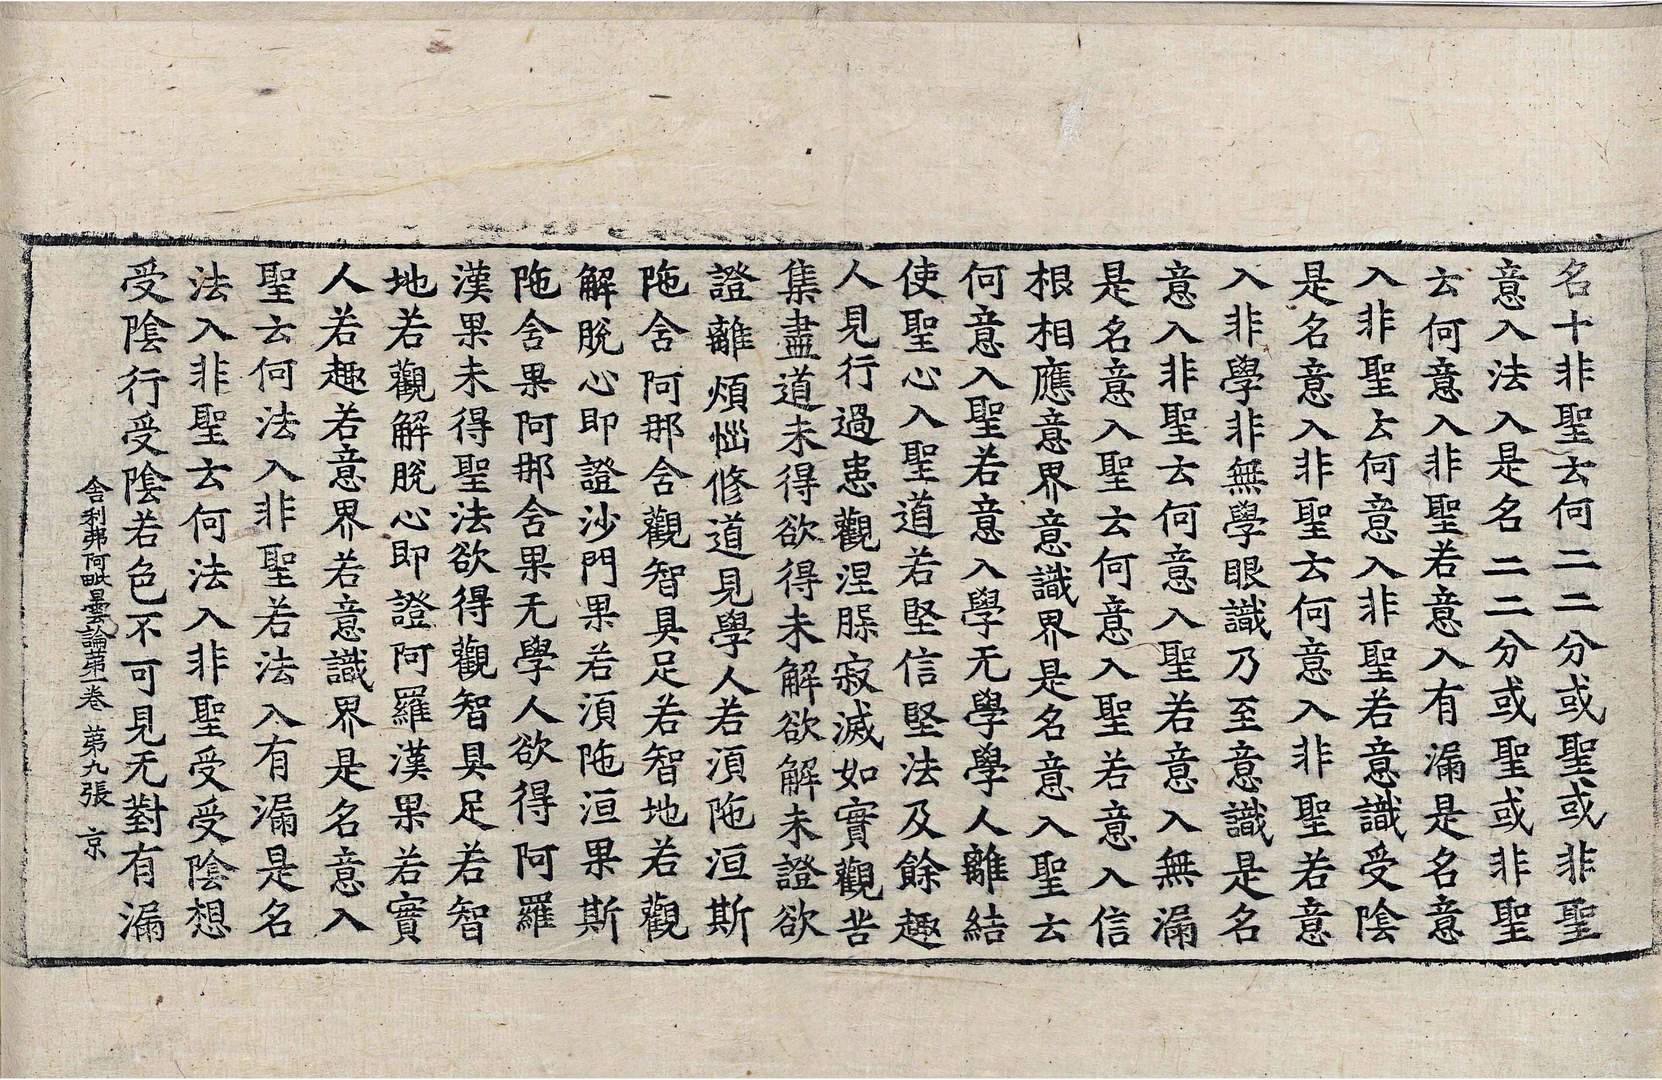 名十非聖云何二二分或聖或非聖
意入法入是名二二分或聖或非聖
云何意入非聖若意入有漏是名意
入非聖云何意入非聖若意識受陰
是名意入非聖云何意入非聖若意
入非學非無學眼識乃至意識是名
意入非聖云何意入聖若意入無漏
是名意入聖云何意入聖若意入信
根相應意界意識界是名意入聖云
何意入聖若意入學无學學人離結
使聖心入聖道若堅信堅法及餘趣
人見行過患觀涅槃寂滅如實觀苦
集盡道未得欲得未解欲解未證欲
證離煩惱修道見學人若湏陁洹斯
陁含阿那含觀智具足若智地若觀
解脫心即證沙門果若湏陁洹果斯
陁含果阿那含果无學人欲得阿羅
漢果未得聖法欲得觀智具足若智
地若觀解脫心即證阿羅漢果若實
人若趣若意界若意識界是名意入
聖云何法入非聖若法入有漏是名
法入非聖云何法入非聖受受陰想
受陰行受陰若色不可見无對有漏
舍利弗阿毗曇論第一卷 第九張 京